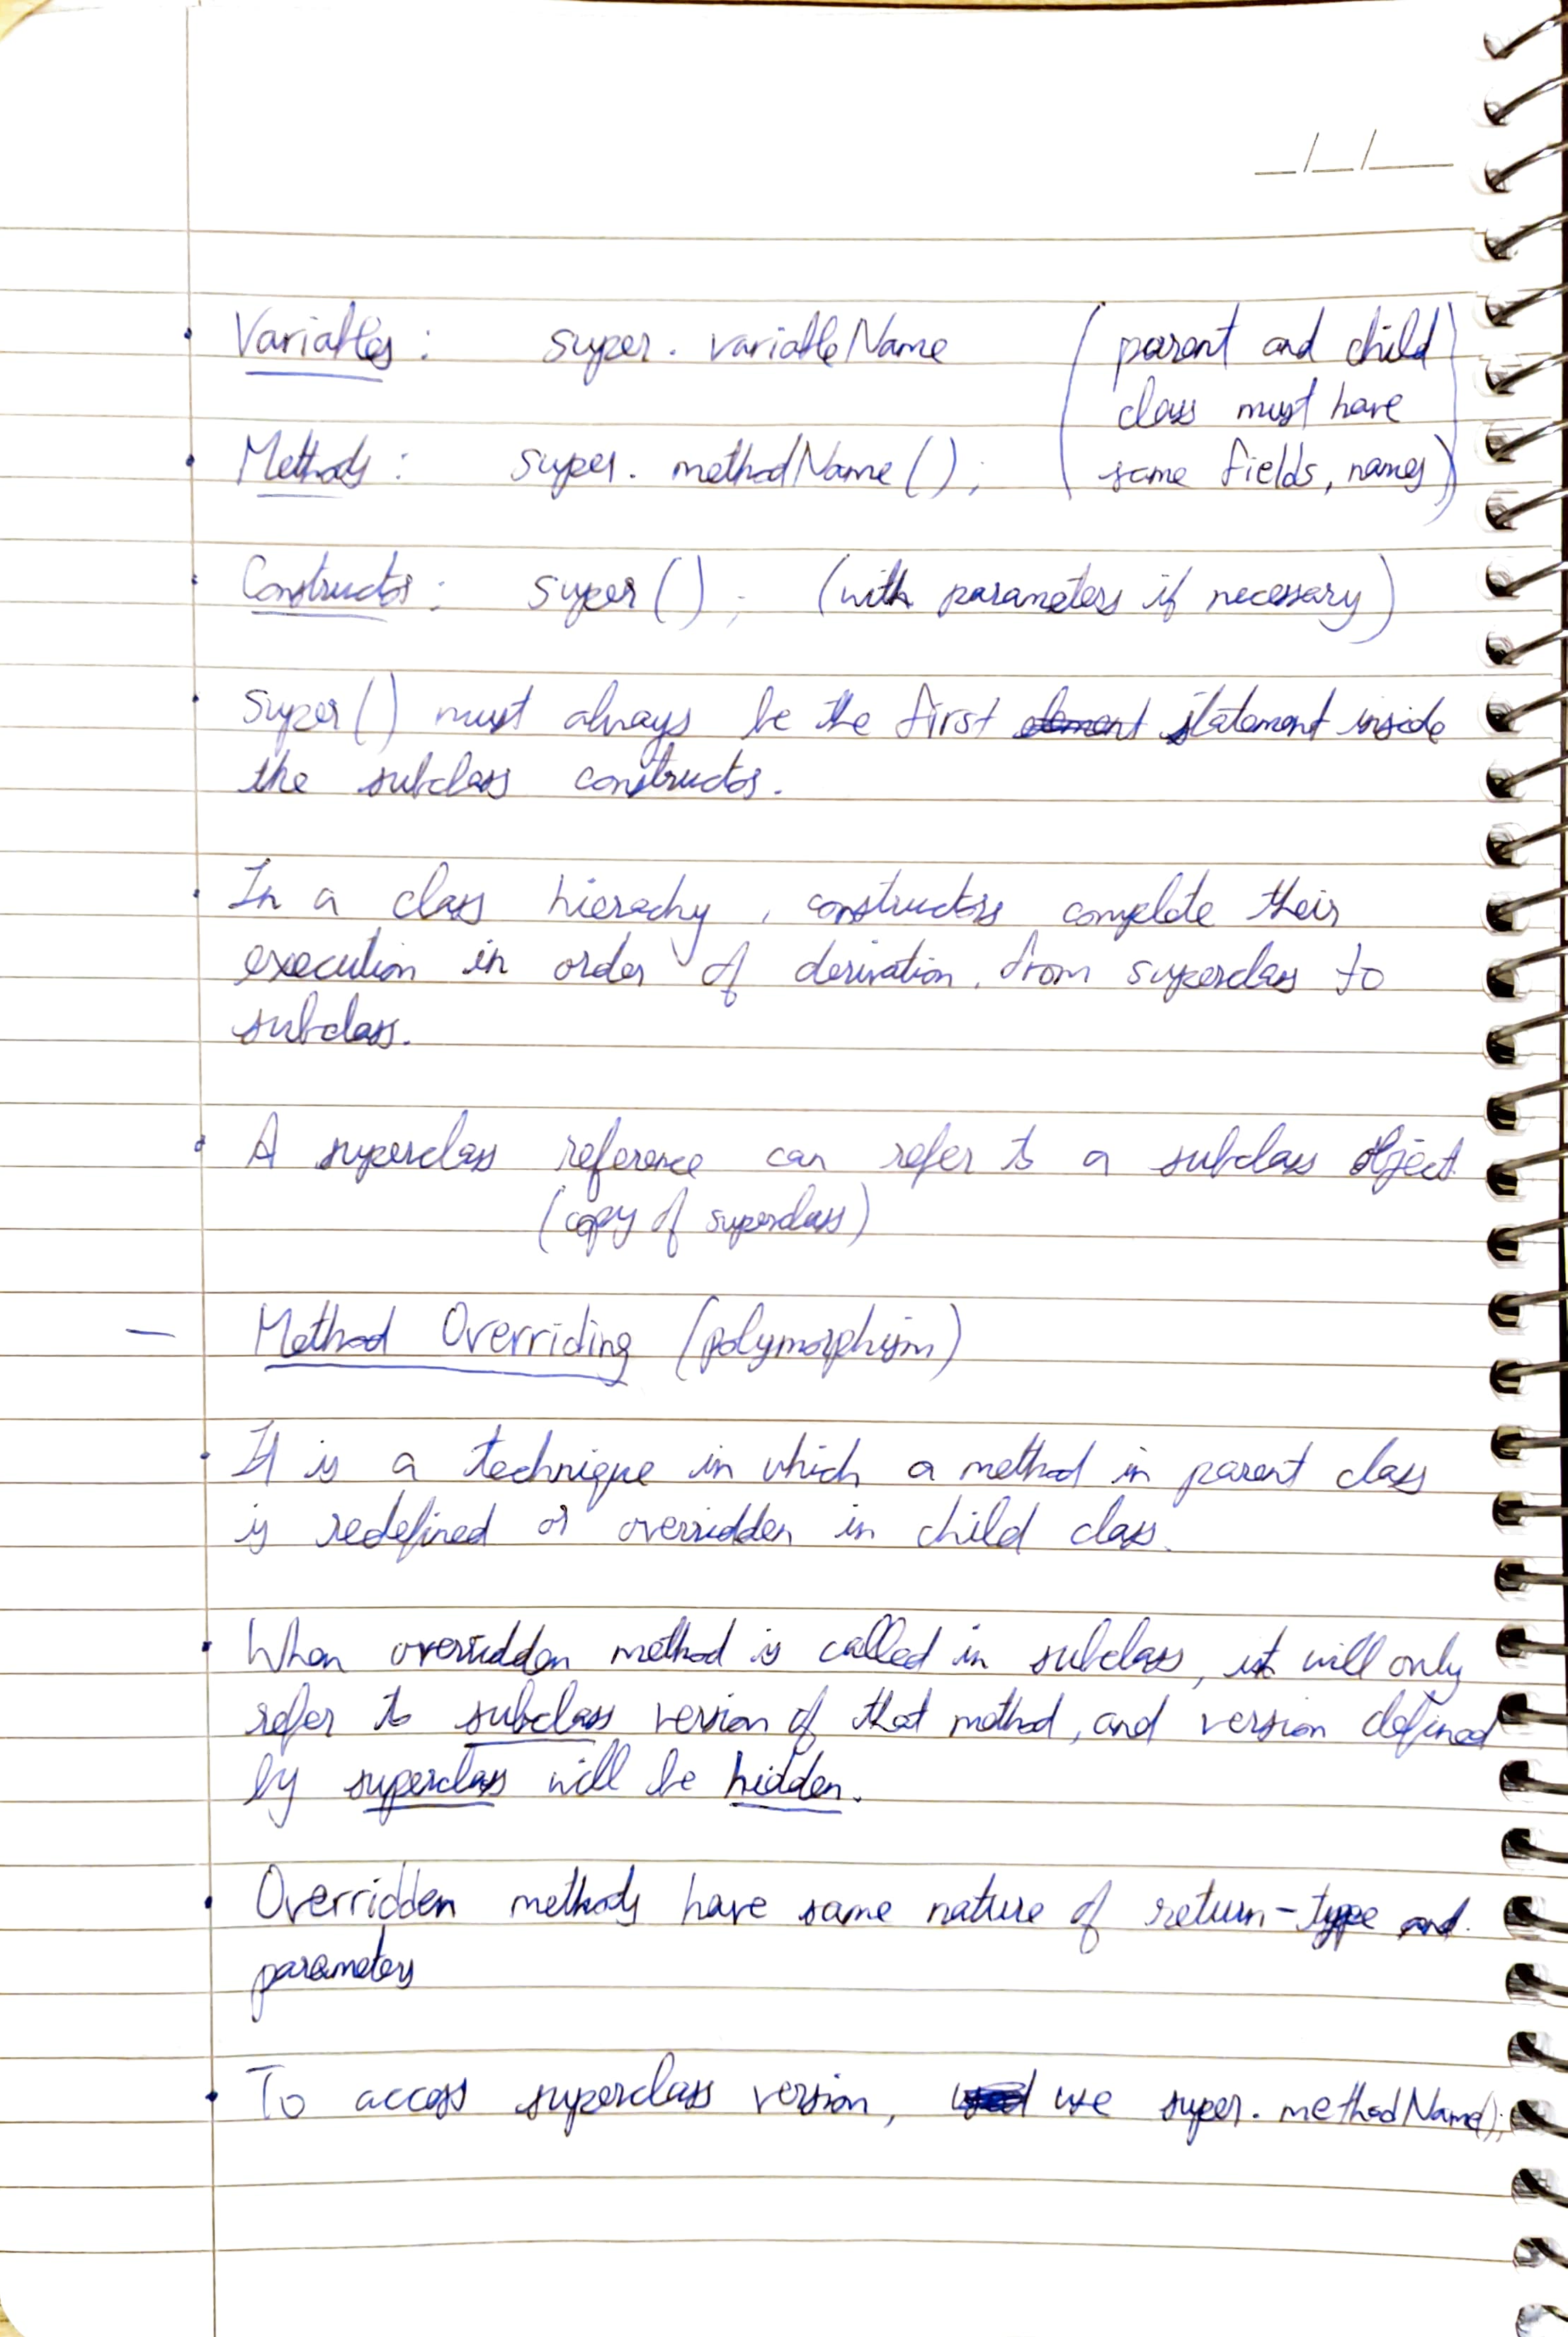 _/_/__
• Variables : super. variableName ( parent and child
class must have
• Methods : super. methodName(); same fields, names)
• Constructor : super(); (with parameters if necessary)
• super() must always be the first element statement inside
the subclass constructor.
• In a class hierachy, constructors complete their
execution in order of derivation, from superclass to
subclass.
• A superclass reference can refer to a subclass object
(copy of superclass)
— Method Overriding (polymorphism)
• It is a technique in which a method in parent class
is redefined or overridden in child class.
• When overridden method is called in subclass, it will only
refer to subclass version of that method, and version defined
by superclass will be hidden.
• Overridden methods have same nature of return-type and
parameters
• To access superclass version, use super. methodName();